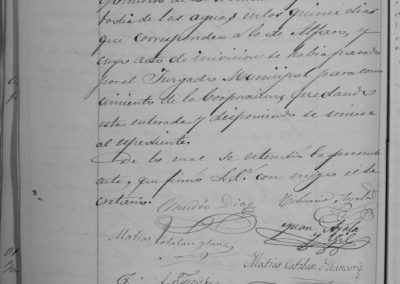 todia de las aguas en los quince dias
que corresponden a la de Alfaro, y
cuyo acto de inivicion se habia pasado
por el Juzgado Municipal para cono
cimiento de la Corporacion, quedando
esta enterada y disponiendo se uniese
al espediente.
De lo cual se estendió la presente
acta, que firmó S.S. con migo el Se
cretario.
Claudio Diaz
Tiburcio Ayala
Juan Ayala
y Gil
Matias Catalan
Matias Catalan Munarriz